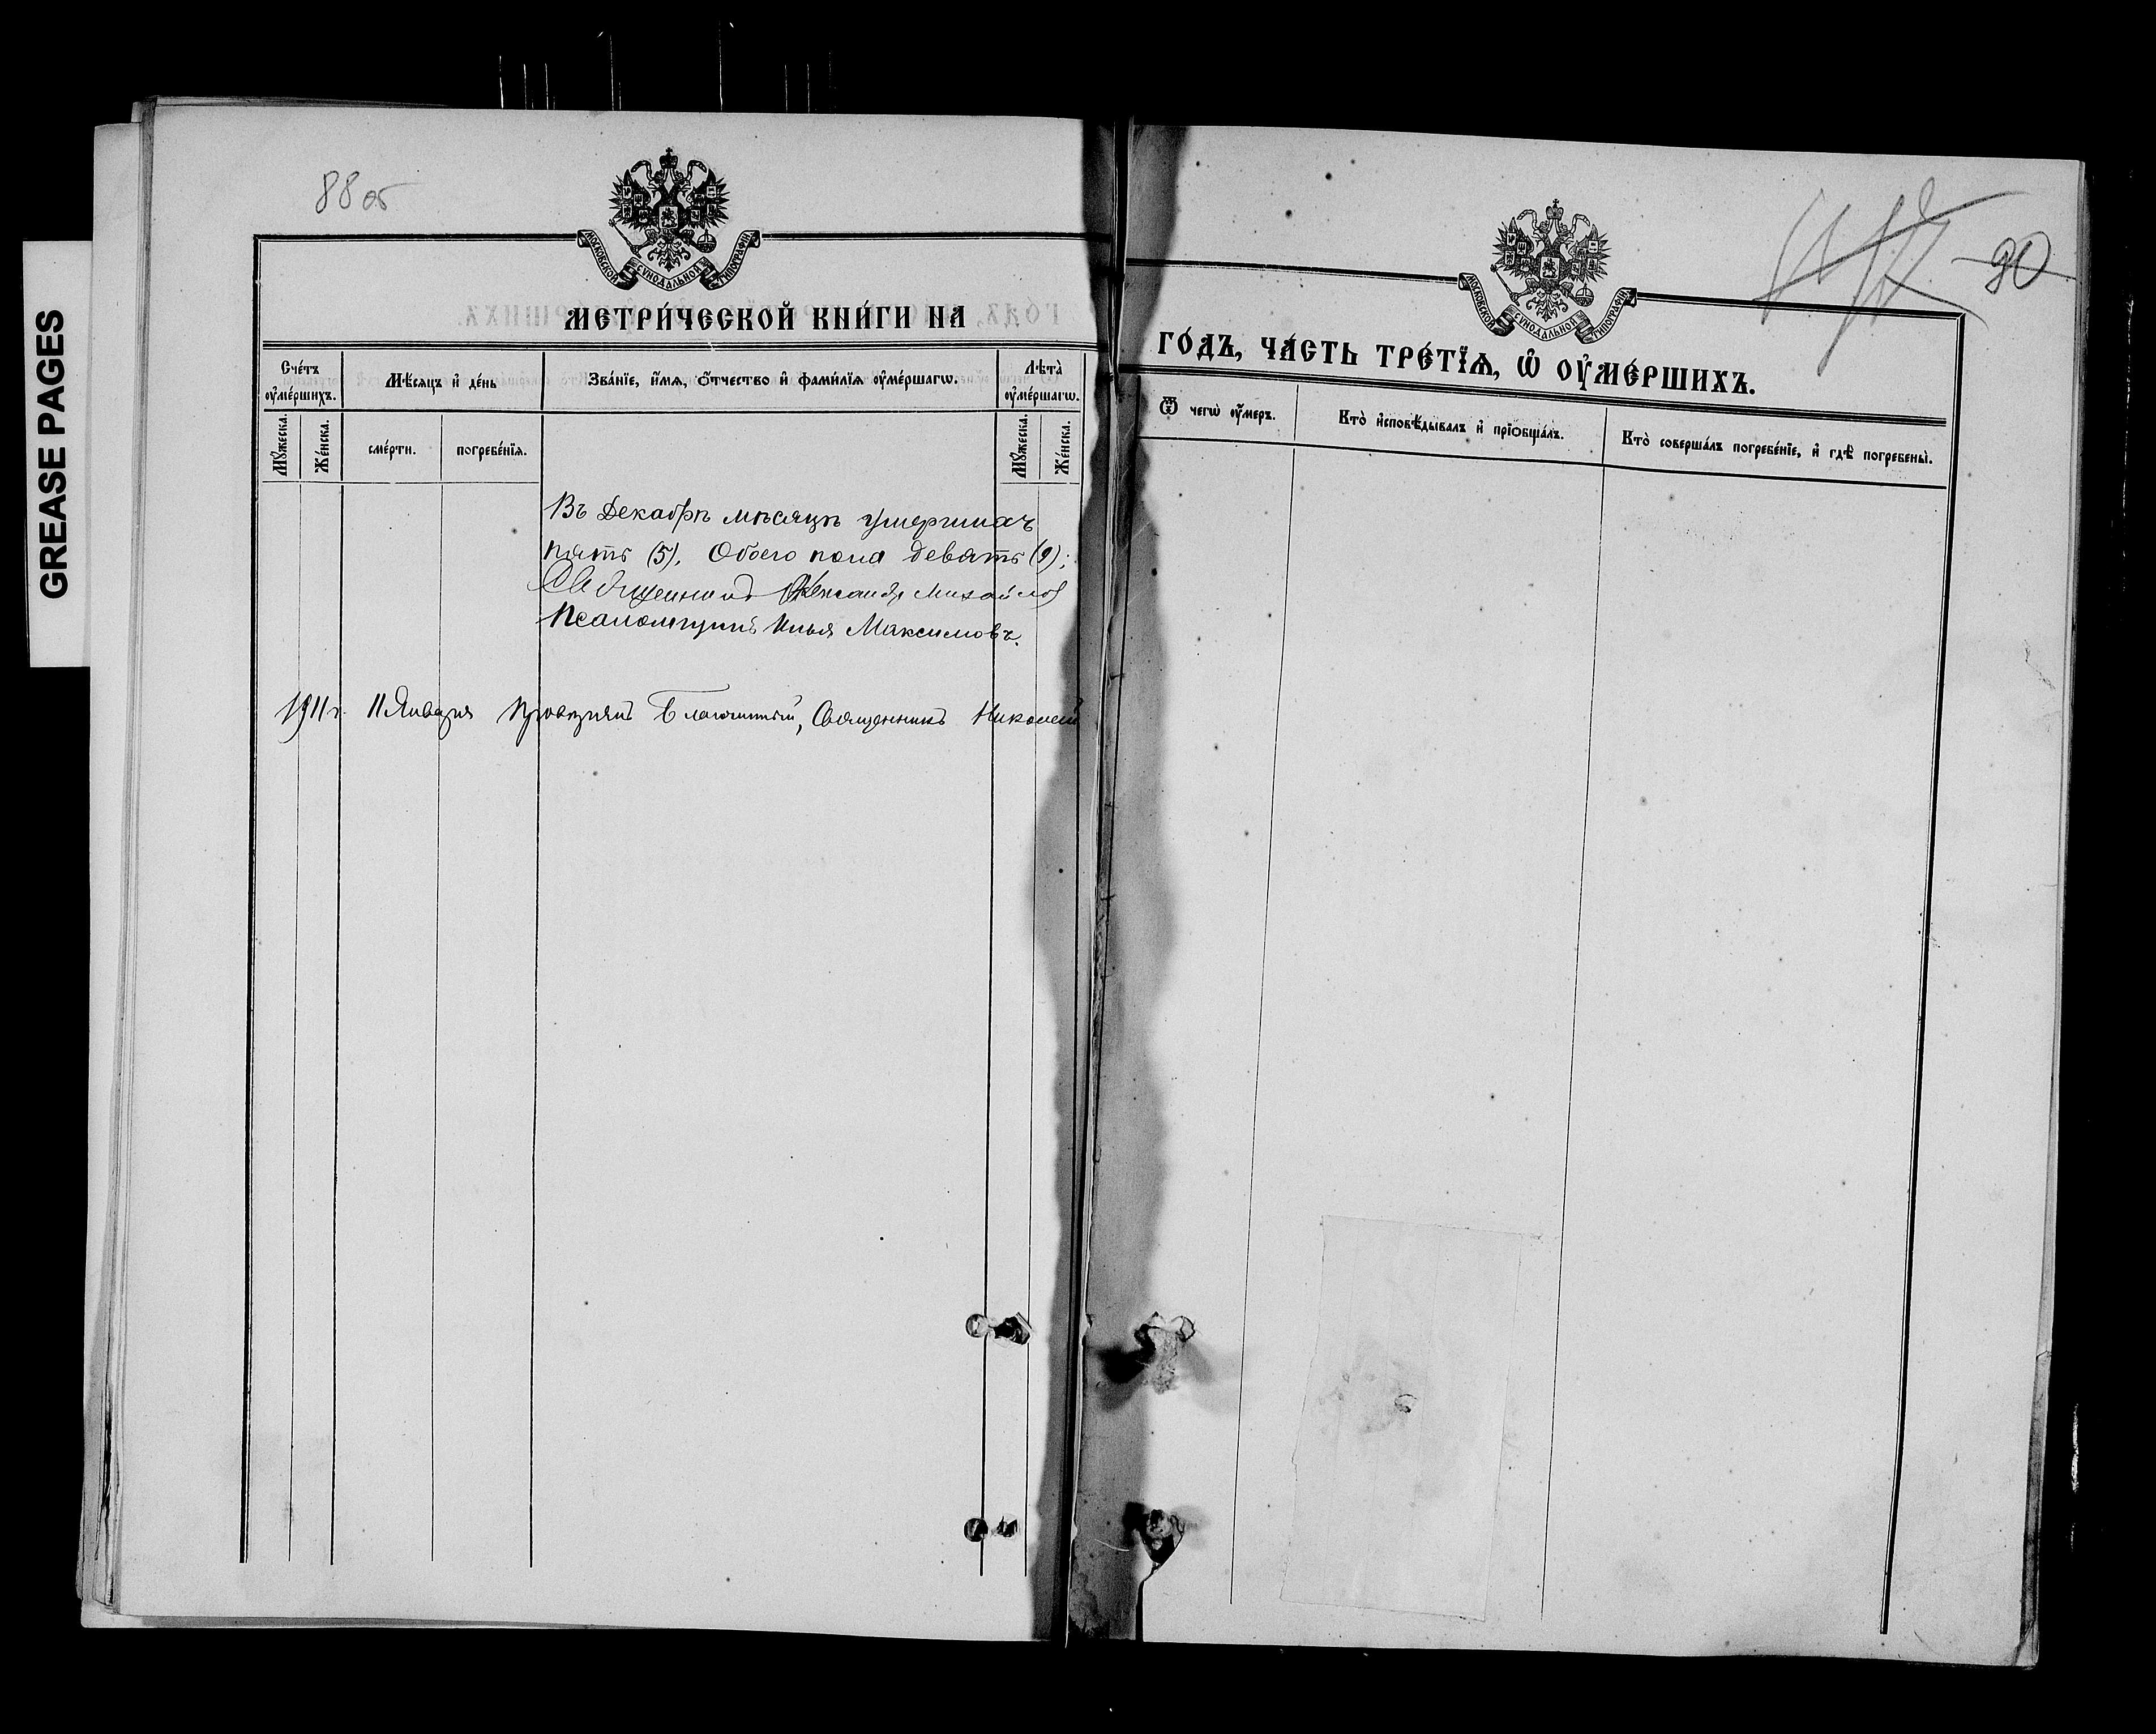 GREASE PAGES
88 об
МОСКОВСКОЙ СѴНОДАЛЬНОЙ ТИПОГРАФІИ.
МЕТРИ́ЧЕСКОЙ КНИ́ГИ НА
Сче́тъ ᲂу҆ме́ршихъ.
Мѣ́сяцъ и҆ де́нь
Зва́нїе, и҆́мя, ѻ҆́тчество и҆ фами́лїя ᲂу҆ме́ршагѡ.
Лѣ́та ᲂу҆ме́ршагѡ.
Мꙋ́жеска.
Же́нска.
сме́рти.
погребе́нїя.
Мꙋ́жеска.
Же́нска.
Въ Декабрѣ мѣсяцѣ умершихъ
пять (5). Обоего пола девять (9);
Священникъ Александръ Михайлов
Псаломщикъ Илья Максимовъ.
1911 г. 11 Января Провѣрялъ Благочинный, Священникъ Николай
90
МОСКОВСКОЙ СѴНОДАЛЬНОЙ ТИПОГРАФІИ.
ГО́ДЪ, ЧА́СТЬ ТРЕ́ТЇѦ, Ѽ ОУ҆МЕ́РШИХЪ.
Ѿ чегѡ̀ ᲂу҆́меръ.
Кто̀ и҆сповѣ́дывалъ и҆ прїѻбща́лъ.
Кто̀ соверша́лъ погребе́нїе, и҆ гдѣ̀ погребены̀.